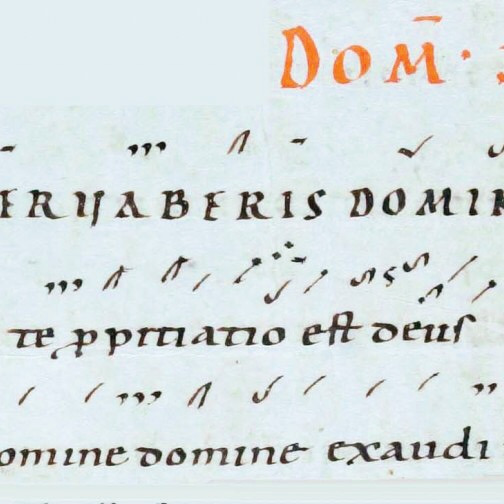 DOM̄ ·
ERUABERIS DOMI
te ꝓpitiatio est deus
omine domine exaudi